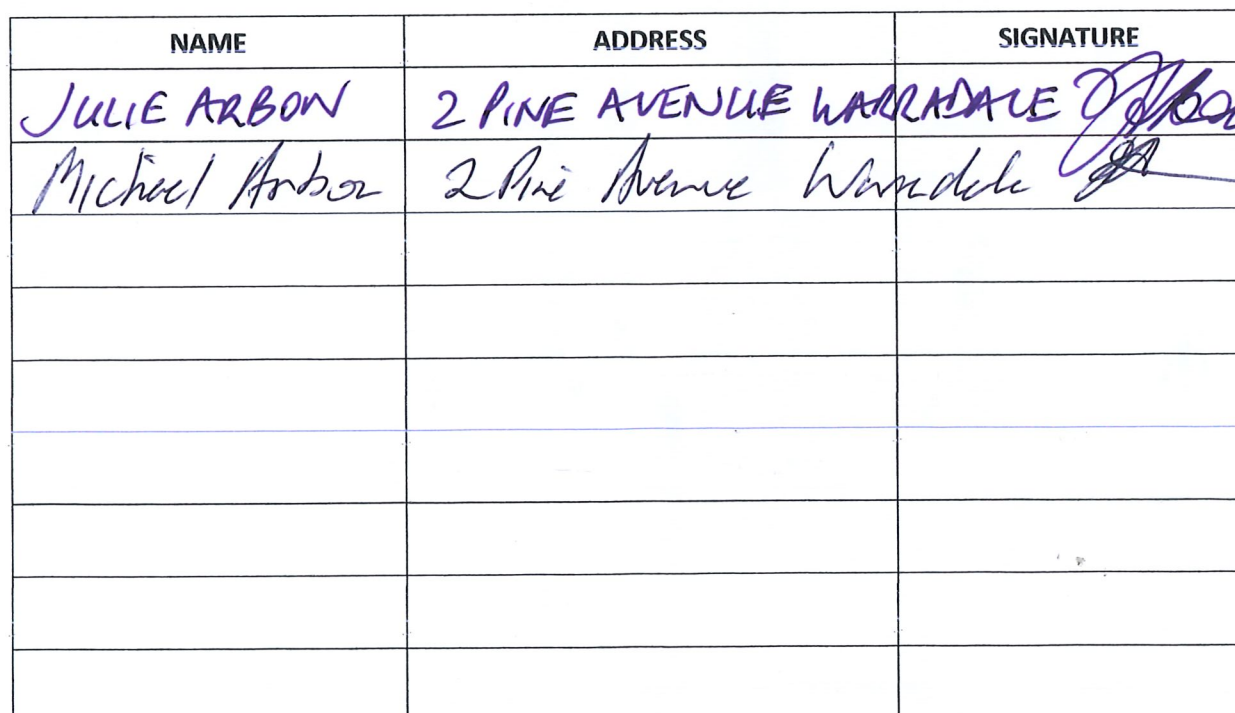 NAME ADDRESS SIGNATURE
JULIE ARBON 2 PINE AVENUE WARRADALE
Michael Arbon 2 Pine Avenue Warradale